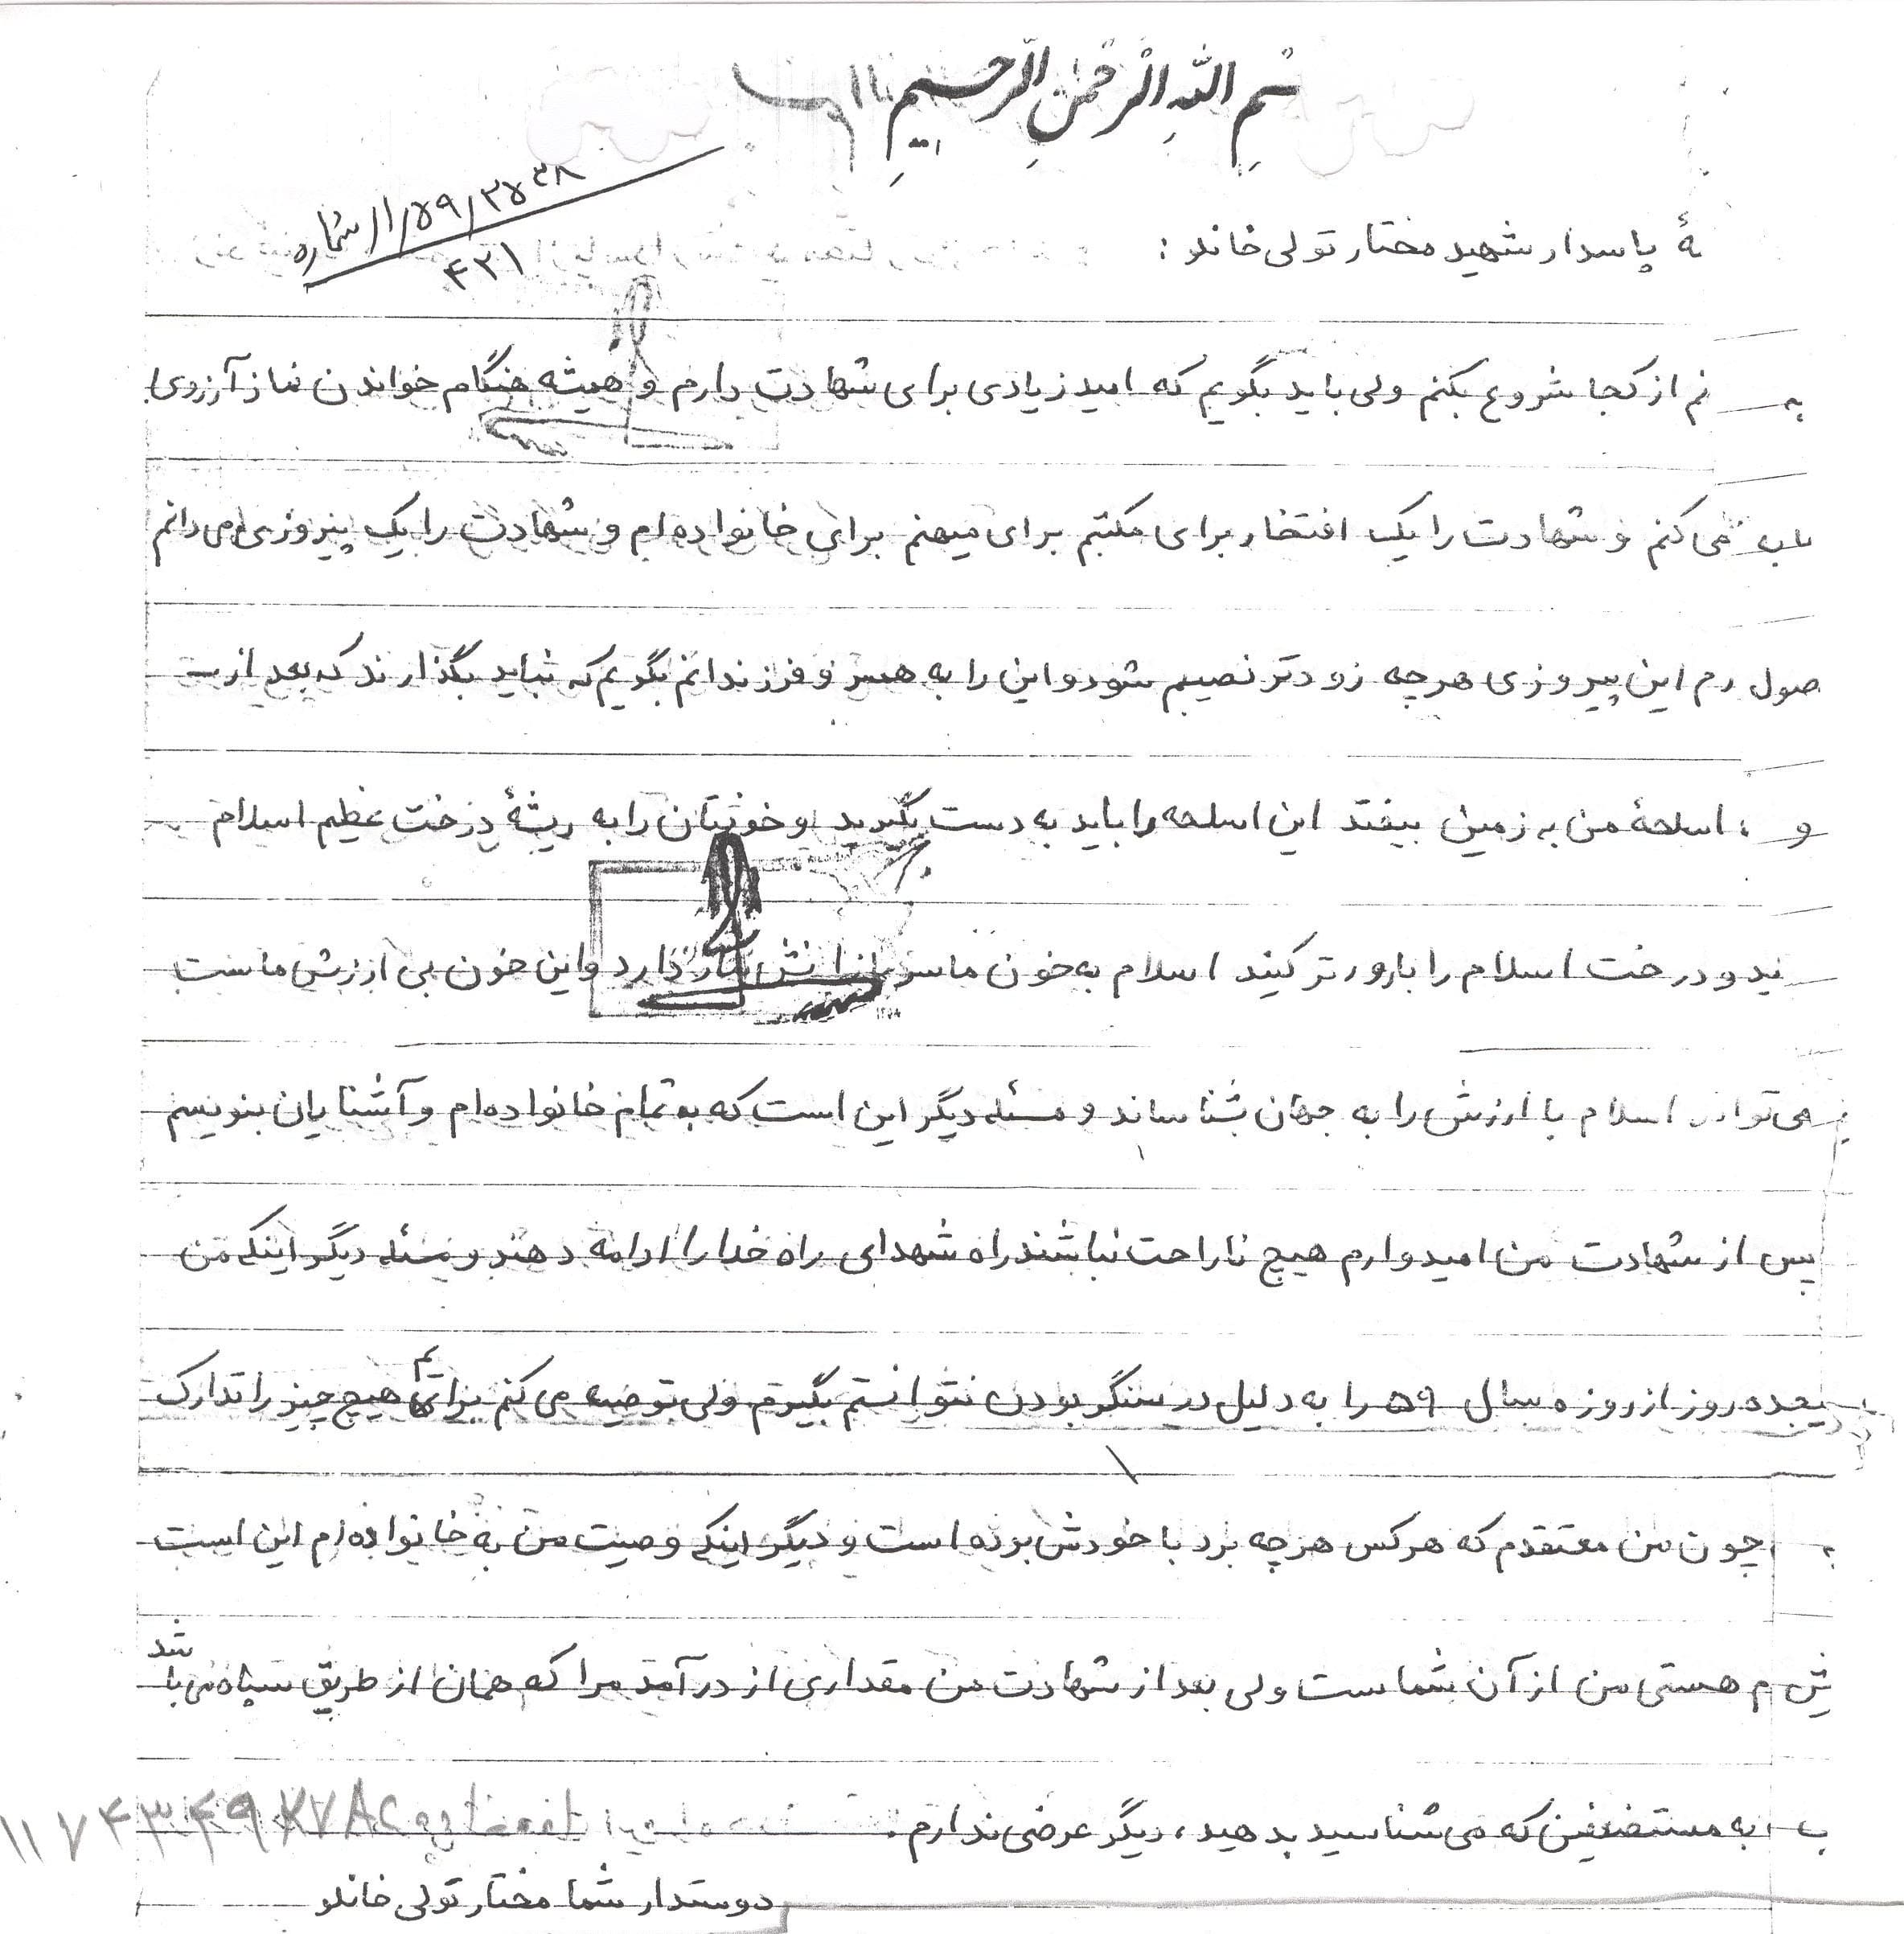 بِسْمِ اللهِ الرَّحْمٰنِ الرَّحِيمِ
شماره
۴۲۱
ۀ پاسدار شهید مختار تولی خانلو :
نم از کجا شروع بکنم ولی باید بگویم که امید زیادی برای شهادت دارم و همیشه هنگام خواندن نماز آرزوی
می کنم و شهادت را یک افتخار برای مکتبم برای میهنم برای خانواده ام و شهادت را یک پیروزی می دانم
رم این پیروزی هرچه زودتر نصیبم شود و این را به همسر و فرزندانم بگویم که نباید بگذارند که بعد از
و اسلحۀ من به زمین بیفتد این اسلحه را باید به دست بگیرید و خونتان را به ریشۀ درخت عظیم اسلام
ید و درخت اسلام را بارورتر کنید اسلام به خون ما سربازانش نیاز دارد و این خون بی ارزش ماست
می تواند اسلام با ارزش را به جهان بشناساند و مسئله دیگر این است که به تمام خانواده ام و آشنایان بنویسم
پس از شهادت من امیدوارم هیچ ناراحت نباشند راه شهدای راه خدا را ادامه دهند و مسئله دیگر اینکه من
یجده روز از روزه سال ۵۹ را به دلیل در سنگر بودن نتوانستم بگیرم ولی توصیه می کنم برایم هیچ چیز را تدارک
چون من معتقدم که هرکس هرچه برد با خودش برده است و دیگر اینکه وصیت من به خانواده ام این است
م هستی من از آن شماست ولی بعد از شهادت من مقداری از درآمد مرا که همان از طریق سپاه می باشد
به مستضعفین که می شناسید بدهید، دیگر عرضی ندارم.
دوستدار شما مختار تولی خانلو